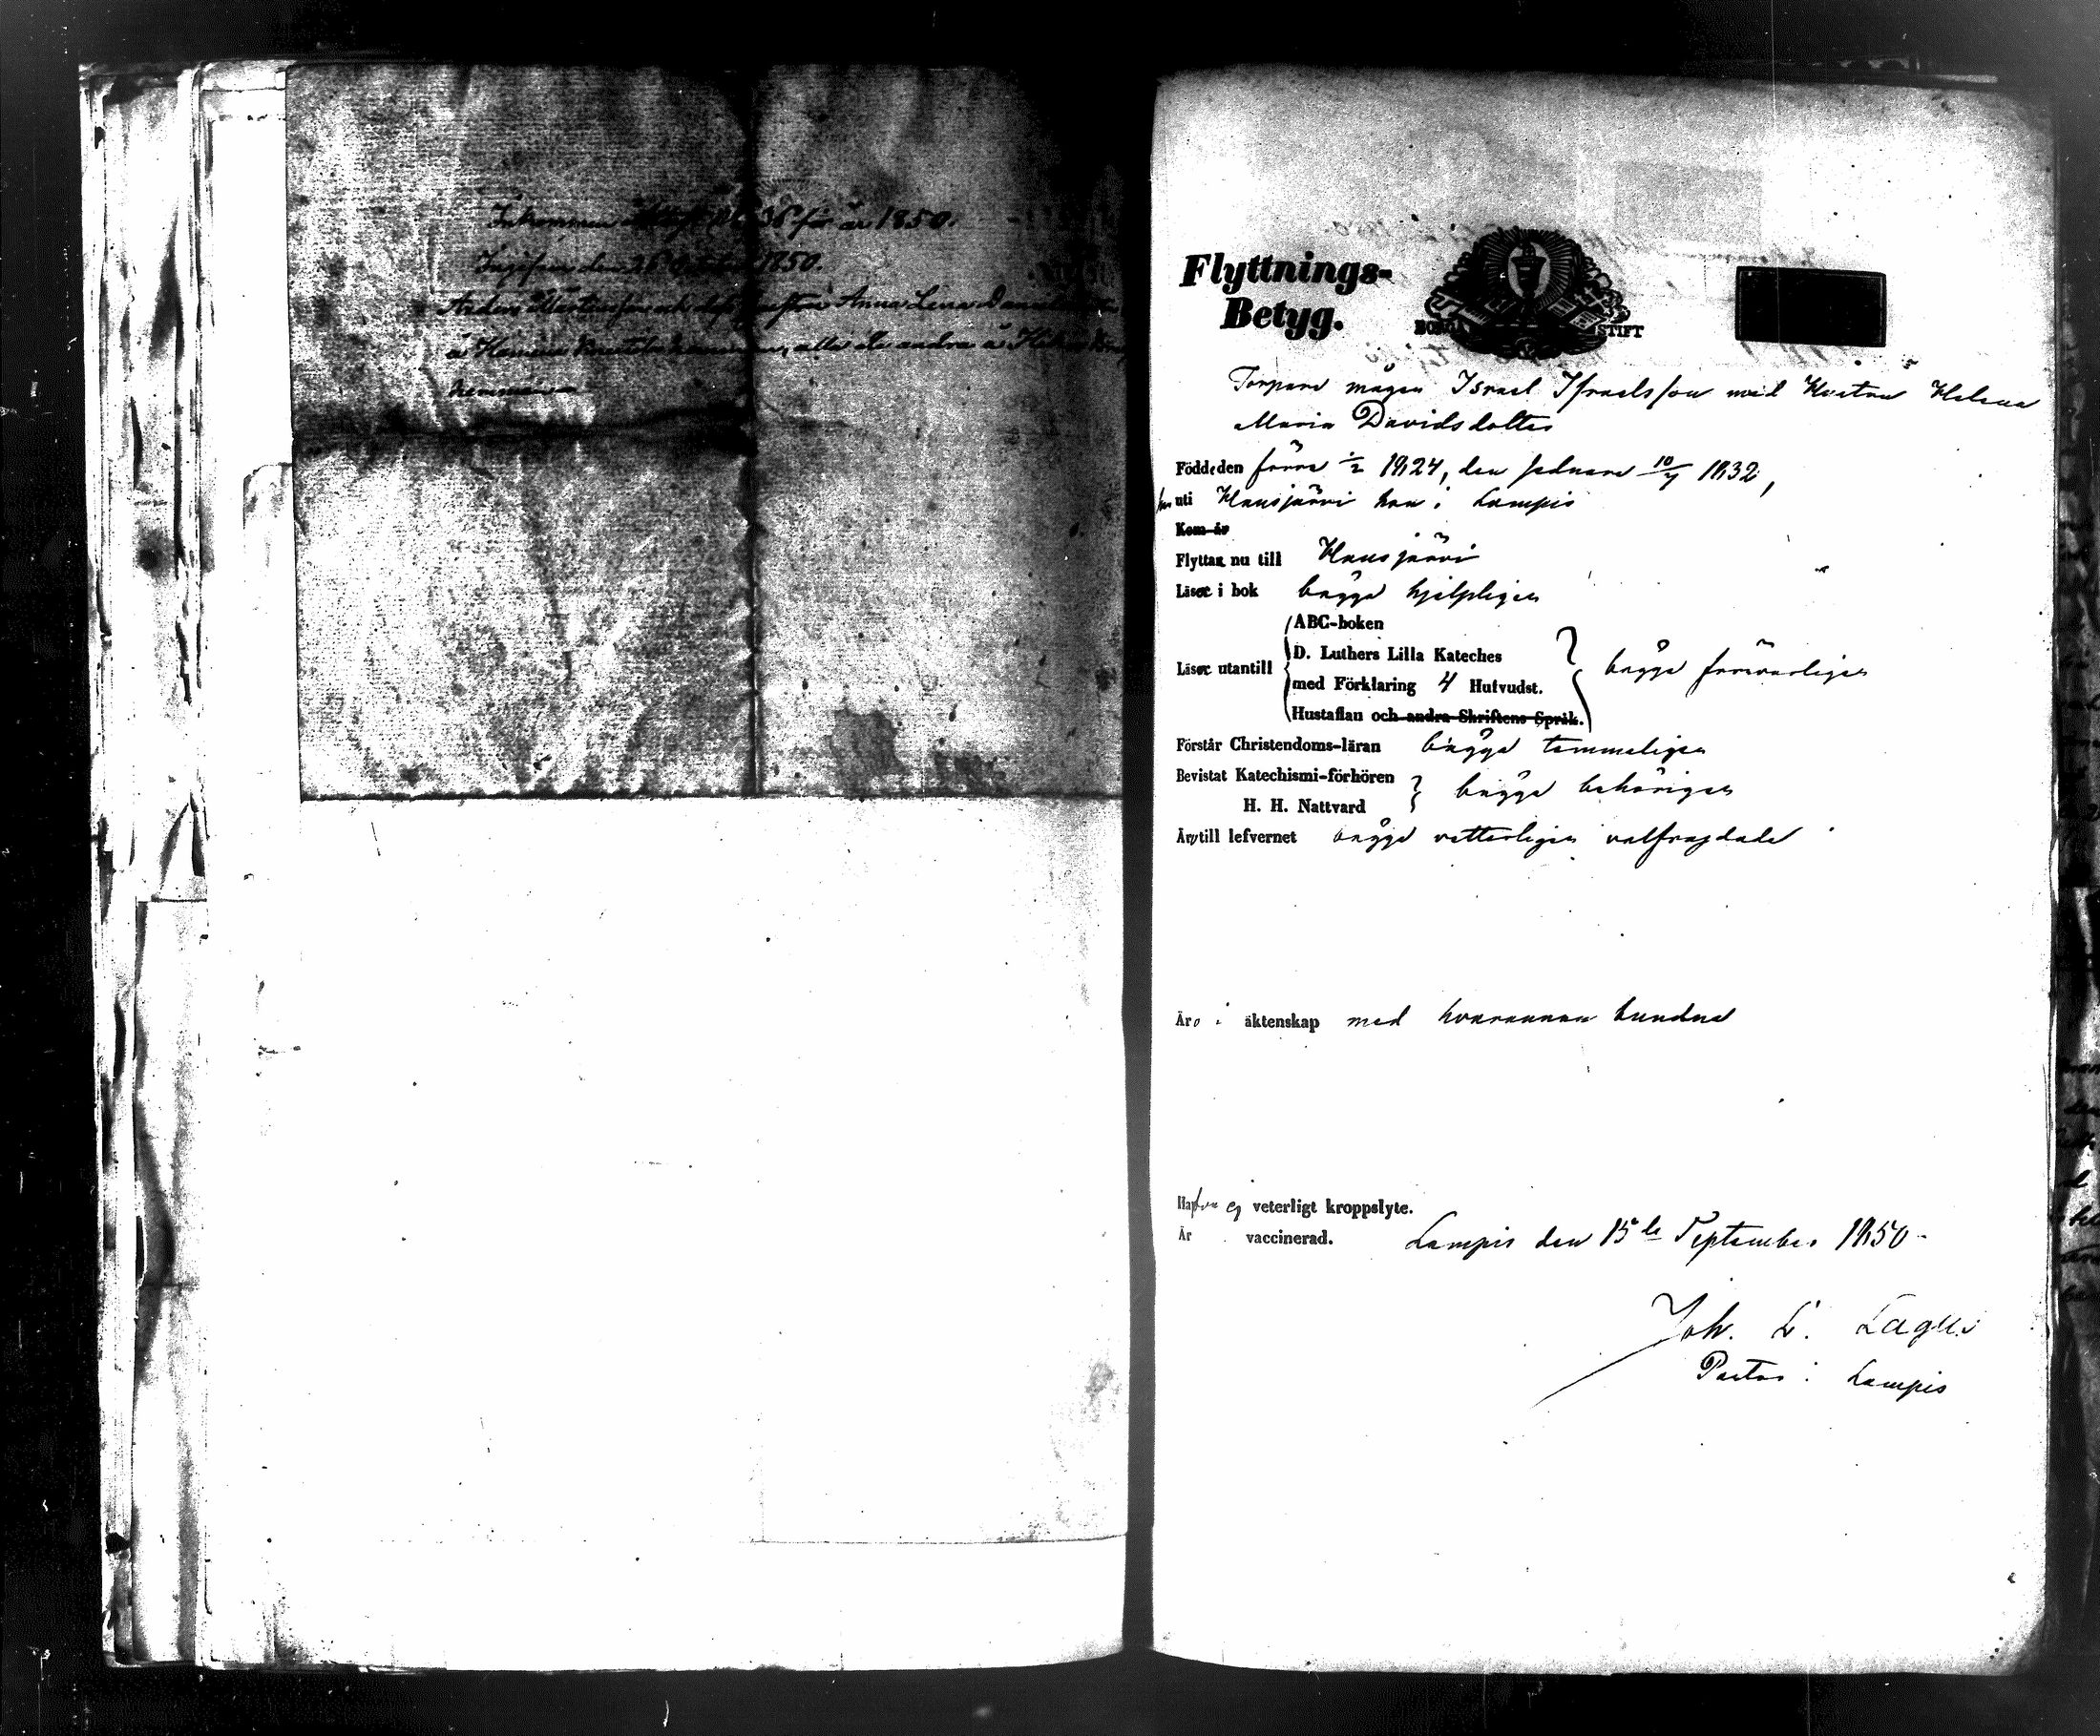 Inkommen attest No 36 för år 1850.
Ingifven den 26 October 1850.
Anders och Anna Lena
å alla de andra å
hemman
Flyttnings-
Betyg.
BORGÅ STIFT
Torpare mågen Israel Israelsson med Hustru Helena
Maria Davidsdotter
Födde den förre 1/2 1824, den sednare 10/7 1832,
han uti Hausjärvi hon i Lampis
Kom år
Flytta nu till Hausjärvi
Läser i bok bägge hjelpligen
ABC-boken
D. Luthers Lilla Kateches
Läser utantill
med Förklaring 4 Hufvudst.
bägge försvarligen
Hustaflan och andra Skriftens Språk.
Förstår Christendoms-läran bägge temmeligen
Bevistat Katechismi-förhören
H. H. Nattvard
bägge behörigen
Äro till lefvernet bägge vetterligen välfrejdade
Äro i äktenskap med hvarannan bundne
Hafva ej veterligt kroppslyte.
Är vaccinerad.
Lampis den 15de September 1850.
Joh. L. Lagus
Pastor i Lampis